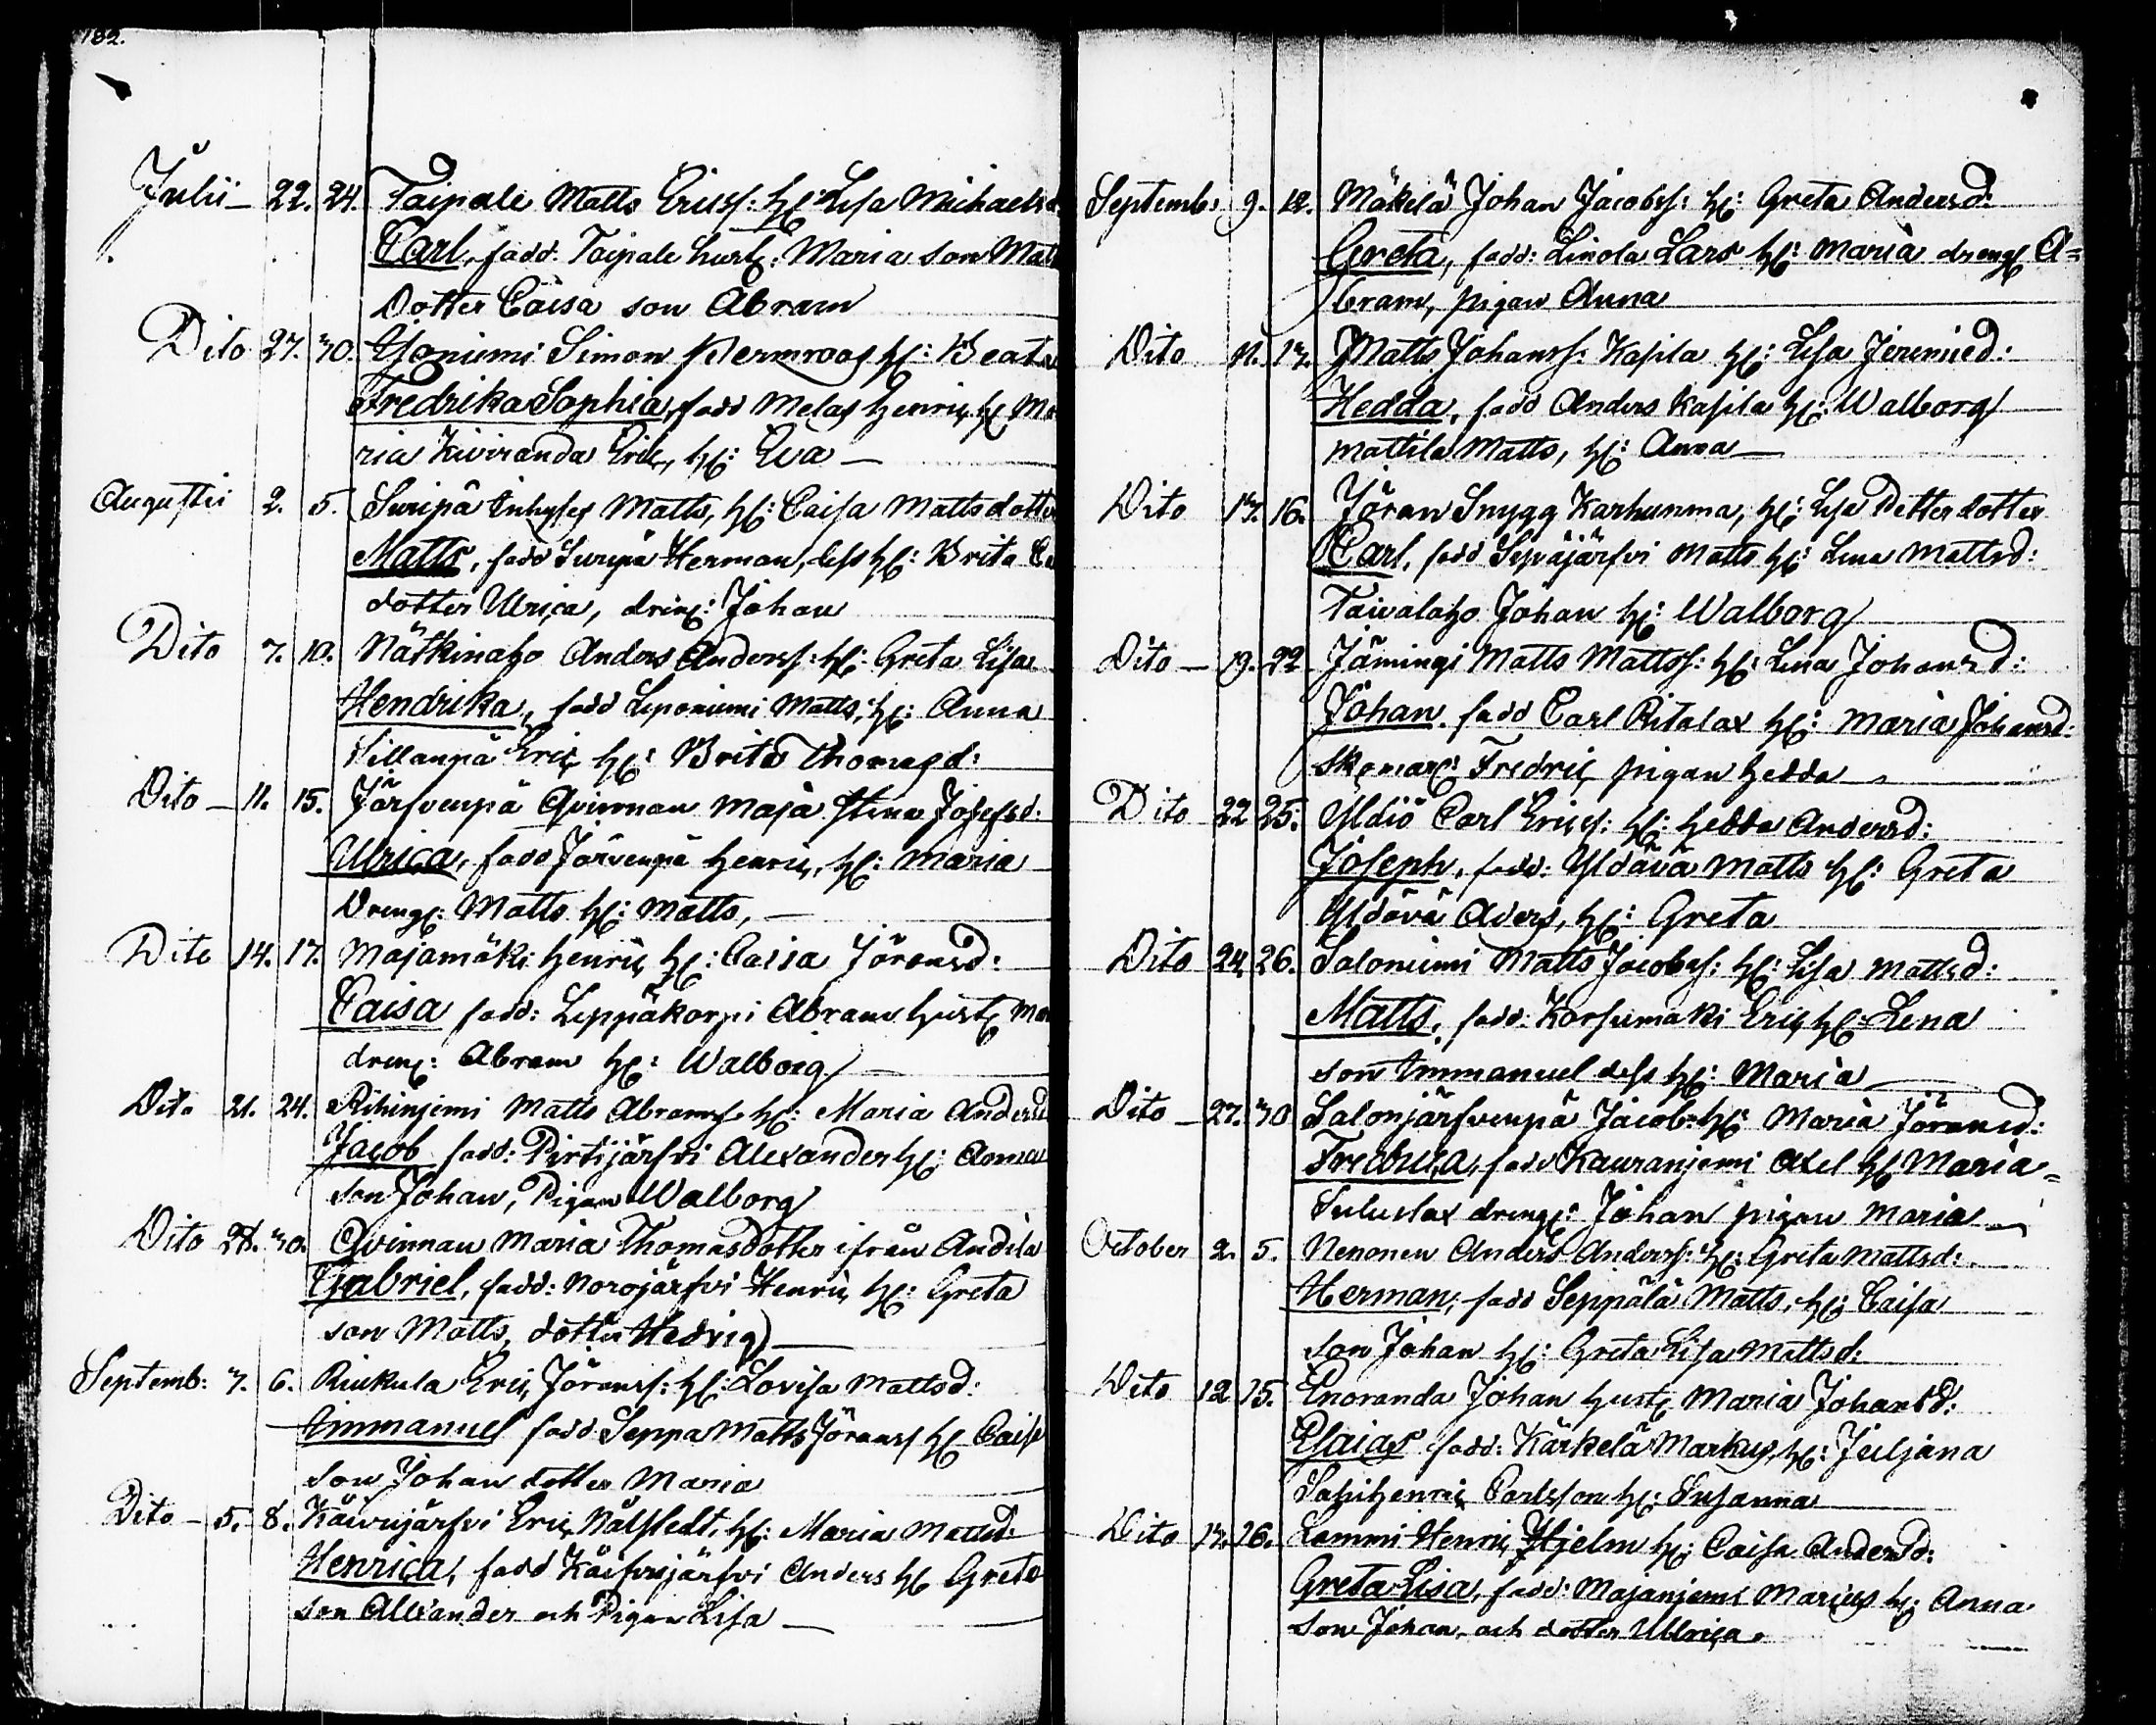 182.
Julii — 22. 24. Taipale Matts Ericss: H: Lisa Michaelsd
Carl, fadd. Taipale hust: Maria son Mat
Dotter Caisa son Abram
Dito 27. 30. Simon H: Beata
Fredrika Sophia, fadd Melas Henric H: Ma
ria Kiviranda Eric, H: Eva —
Augustii 2. 5. Suripä Inhyses Matts, H: Caisa Mattsdotter
Matts, fadd Suripä Herman, dess H: Brita
dotter Ulrica, dreng: Johan
Dito 7. 10. Nätkinaho Anders Anderss: H: Greta Lisa
Hendrika, fadd Leponiemi Matts, H: Anna
Sillanpä Eric H: Brita Thomasd:
Dito — 11. 15. Järfvenpä Qvinnan Maja Stina Josefsd:
Ulrica, fadd Järvenpä Henric, H: Maria
Dreng: Matts H: Matts, —
Dito 14. 17. Majamäki Henric H: Caisa Jöransd:
Caisa fadd: Leppäkorpi Abram hust Ma
dreng: Abram H: Walborg —
Dito 21. 24. Rihinjemi Matts Abramss H: Maria Andersd
Jacob fadd: Pirtijärfvi Alexander H: Anna
son Johan, Pigan Walborg
Dito 28. 30. Qvinnan Maria Thomasdotter ifrån Andila
Gabriel, fadd: Norojärfvi Henric H: Greta
son Matts, dotter Hedvig —
Septemb: 3. 6. Riukula Eric Jöranss: H: Lovisa Mattsd:
Immanuel fadd Seppa Matts Jöranss H Caisa
son Johan dotter Maria
Dito — 5. 8. Käivujärfvi Eric H: Maria Mattsd:
Henrica, fadd Käifvujärfvi Anders H Greta
son Allexander och Pigan Lisa —
Septemb: 9. 12. Mäkelä Johan Jacobss: H: Greta Andersd:
Greta, fadd: Linola Lars H: Maria dreng A=
bram, pigan Anna
Dito 11. 13. Matts Johanss: Kasila H: Lisa Jeremied:
Hedda, fadd Anders Kasila H: Walborg
Mattila Matts, H: Anna —
Dito 13. 16. Jöran Snygg Karhunma, H: Lisa Petterdotter
Carl, fadd Matts H: Lena Mattsd:
Taivalaho Johan H: Walborg
Dito — 19. 22 Jämingi Matts Mattss: H: Lena Johansd:
Johan. fadd Carl Ritalax H: Maria Johansd:
Skomak: Fredric pigan Hedda
Dito 22 25. Yldiö Carl Ericss: H: Hedda Andersd:
Joseph, fadd: Yldävä Matts H: Greta
Yldävä H: Greta
Dito 24. 26. Saloniemi Matts Jacobss: H: Lisa Mattsd:
Matts, fadd: Korsumäki Eric H: Lena
son Immanuel dess H: Maria —
Dito — 27. 30 Salonjärfvenpä Jacob: H: Maria Jöransd:
Fredrica, fadd Kauranjemi Axel H Maria=
dreng: Johan pigan Maria —
October 2. 5. Nenonen Anders Anderss: H: Greta Mattsd:
Herman, fadd Seppälä Matts, H: Caisa
son Johan H: Greta Lisa Mattsd:
Dito 12 15. Enoranda Johan hust Maria Johansd:
Esaias fadd: Kärkelä Markus, H: Juljana
Henric Carlsson H: Susanna —
Dito 13. 16. Lammi Henric Hjelm H: Caisa Andersd:
Greta Lisa, fadd: Majanjemi Marcus H: Anna
son Johan, och dotter Ullrica.